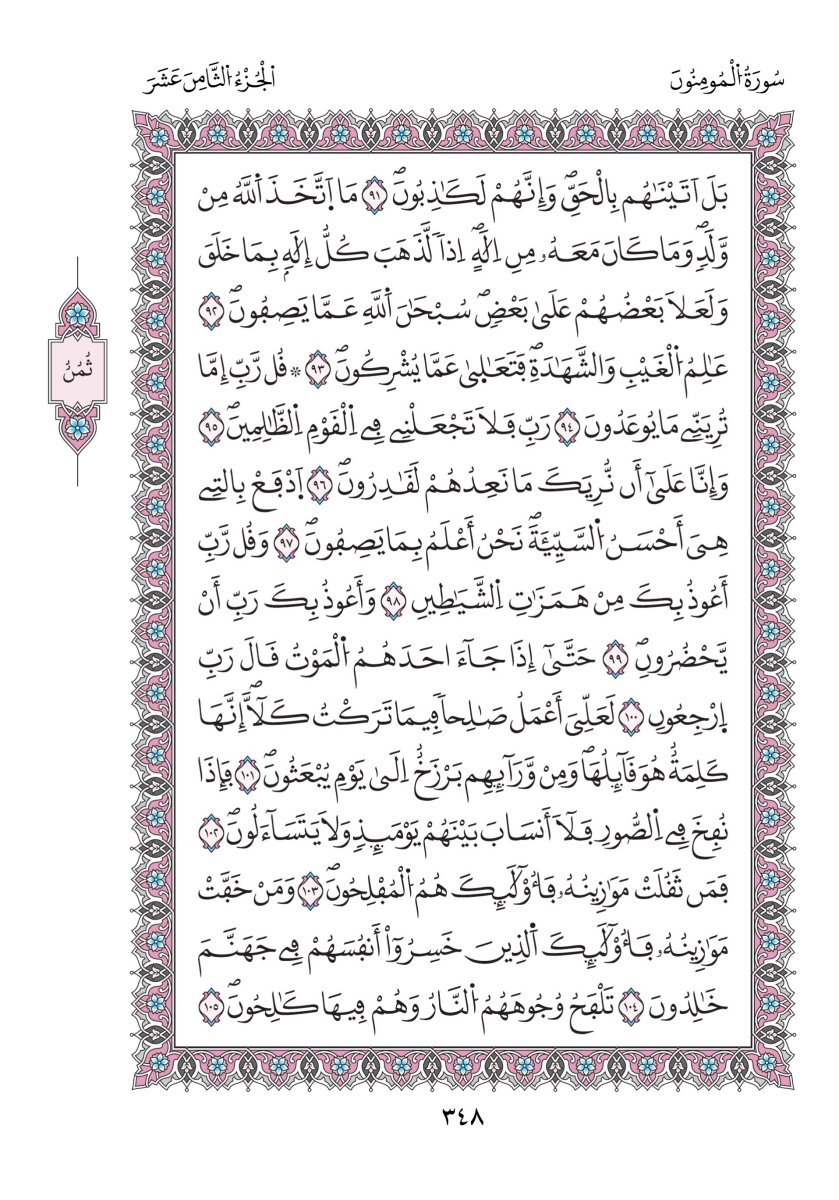 سُورَةُ اُ۬لْمُومِنُونَ
اَ۬لْجُزْءُ اُ۬لثَّامِنَ عَشَرَ
بَلَ اَتَيْنَٰهُم بِالْحَقِّۖ وَإِنَّهُمْ لَكَٰذِبُونَۖ ۝٩١ مَا اَ۪تَّخَذَ اَ۬للَّهُ مِنْ
وَّلَدٖۖ وَمَا كَانَ مَعَهُۥ مِنِ اِلَٰهٍۖ اِذاٗ لَّذَهَبَ كُلُّ إِلَٰهِۢ بِمَا خَلَقَ
وَلَعَلَا بَعْضُهُمْ عَلَىٰ بَعْضٖۖ سُبْحَٰنَ اَ۬للَّهِ عَمَّا يَصِفُونَۖ ۝٩٢
عَٰلِمُ اُ۬لْغَيْبِ وَالشَّهَٰدَةِۖ فَتَعَٰلِىٰ عَمَّا يُشْرِكُونَۖ ۝٩٣ ۞ قُل رَّبِّ إِمَّا
تُرِيَنِّے مَا يُوعَدُونَ ۝٩٤ رَبِّ فَلَا تَجْعَلْنِے فِے اِ۬لْقَوْمِ اِ۬لظَّٰلِمِينَۖ ۝٩٥
وَإِنَّا عَلَىٰٓ أَن نُّرِيَكَ مَا نَعِدُهُمْ لَقَٰدِرُونَۖ ۝٩٦ اَ۪دْفَعْ بِالتِے
هِىَ أَحْسَنُ اُ۬لسَّيِّئَةَۖ نَحْنُ أَعْلَمُ بِمَا يَصِفُونَۖ ۝٩٧ وَقُل رَّبِّ
أَعُوذُ بِكَ مِنْ هَمَزَٰتِ اِ۬لشَّيَٰطِينِ ۝٩٨ وَأَعُوذُ بِكَ رَبِّ أَنْ
يَّحْضُرُونِۖ ۝٩٩ حَتَّىٰٓ إِذَا جَآءَ احَدَهُمُ اُ۬لْمَوْتُ قَالَ رَبِّ
اِ۪رْجِعُونِ ۝١٠٠ لَعَلِّىَ أَعْمَلُ صَٰلِحاٗ فِيمَا تَرَكْتُۖ كَلَّآۖ إِنَّهَا
كَلِمَةٌ هُوَ قَآئِلُهَاۖ وَمِنْ وَّرَآئِهِم بَرْزَخٌ اِلَىٰ يَوْمِ يُبْعَثُونَۖ ۝١٠١ فَإِذَا
نُفِخَ فِے اِ۬لصُّورِ فَلَآ أَنسَابَ بَيْنَهُمْ يَوْمَئِذٖ وَلَا يَتَسَآءَلُونَۖ ۝١٠٢
فَمَن ثَقُلَتْ مَوَٰزِينُهُۥ فَأُوْلَٰٓئِكَ هُمُ اُ۬لْمُفْلِحُونَۖ ۝١٠٣ وَمَنْ خَفَّتْ
مَوَٰزِينُهُۥ فَأُوْلَٰٓئِكَ اَ۬لذِينَ خَسِرُوٓاْ أَنفُسَهُمْ فِے جَهَنَّمَ
خَٰلِدُونَ ۝١٠٤ تَلْفَحُ وُجُوهَهُمُ اُ۬لنَّارُ وَهُمْ فِيهَا كَٰلِحُونَۖ ۝١٠٥
ثُمُنُ
٣٤٨